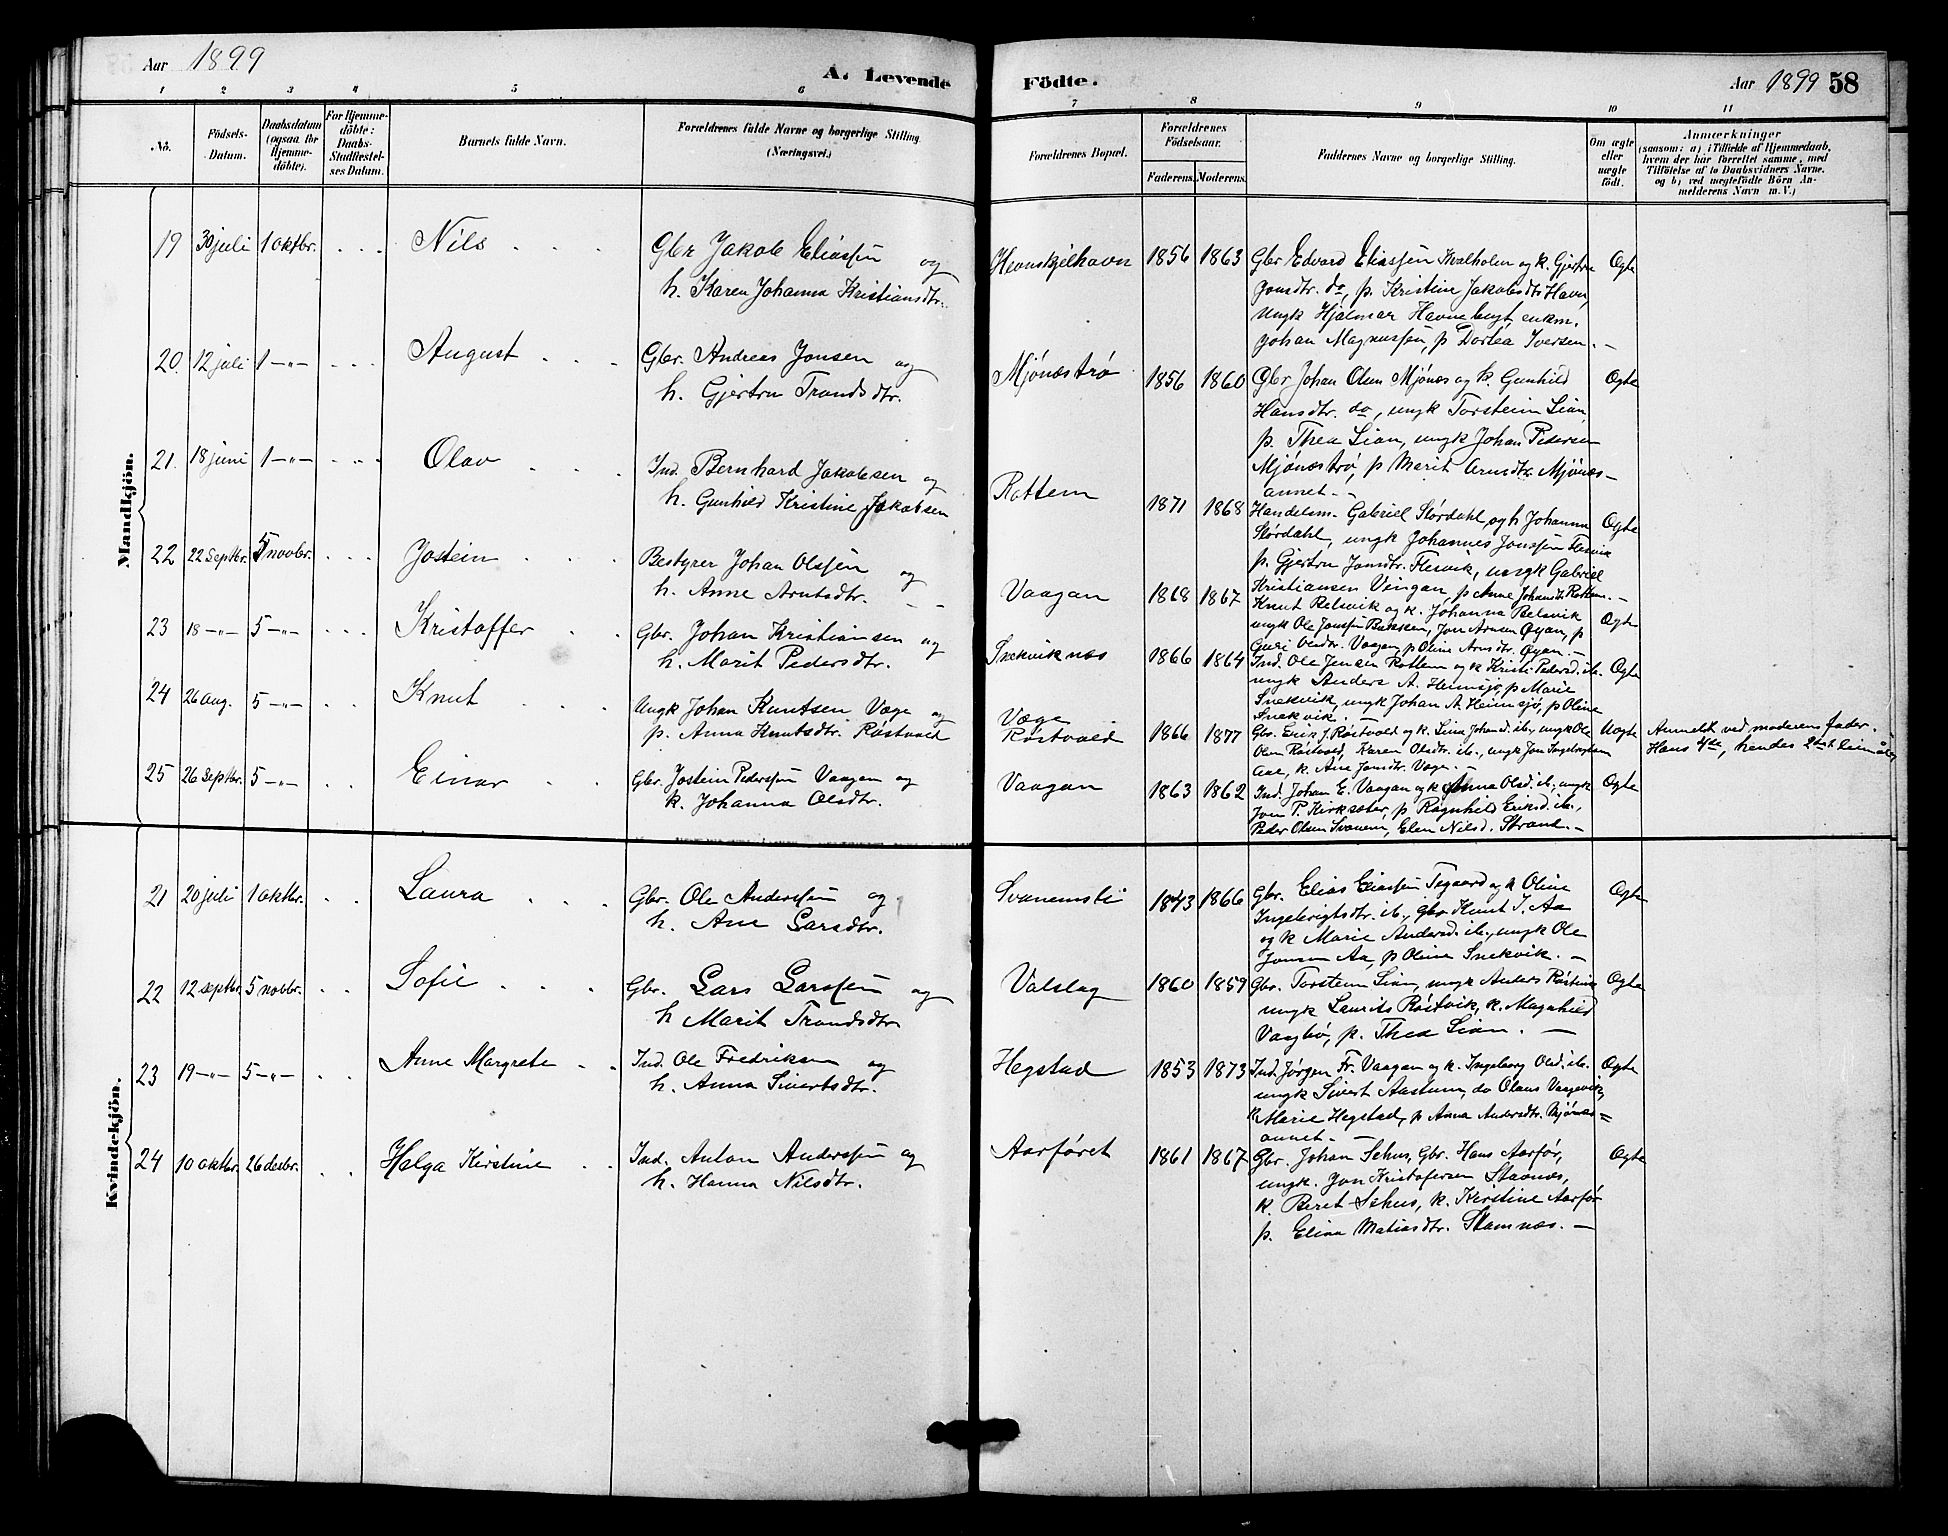 Aar 1899
A. Levende Födte.
Aar 1899 58
1 2 3 4 5 6 7 8 9 10 11
No.
Födsels-Datum.
Daabsdatum (ogsaa for Hjemmedöbte).
For Hjemmedöbte: Daabs-Stadfæstelses Datum.
Barnets fulde Navn.
Forældrenes fulde Navne og borgerlige Stilling. (Næringsvei.)
Forældrenes Bopæl.
Forældrenes Födselsaar.
Faderens. Moderens.
Faddernes Navne og borgerlige Stilling.
Om ægte eller uægte födt.
Anmærkninger
(saasom: a) i Tilfælde af Hjemmedaab, hvem der har forrettet samme, med Tilföielse af to Daabsvidners Navne, og b) ved uægtefödte Börn Anmelderens Navn m. V.)
Mandkjön.
19 30 juli 1 oktbr. Nils
Gbr Jakob Eliassen og
h. Karen Johanna Kristiansdtr.
Hevnskjelhavn 1856 1863
Gbr Edvard Eliassen Kvalholm og k. Gjertru
Jonsdtr. do, p. Kristine Jakobsdtr Havn,
ungk Hjelmar Havnebugt, enkm.
Johan Magnussen, p Dortea Iversen. –
Ægte
20. 12 juli 1 -"- August
Gbr. Andreas Jonsen og
h. Gjertru Trondsdtr.
Mjönæstrø 1856 1860
Gbr Johan Olsen Mjönes og k. Gunhild
Hansdtr. do, ungk Torstein Lian,
p. Thea Lian, ungk Johan Pedersen
Mjönæströ, p Marit Arnsdtr Mjönes-
annet. –
Ægte
21. 18 juni 1 -"- Olav
Ind. Bernhard Jakobsen og
h. Gunhild Kristine Jakobsen
Rottem 1871 1868
Handelsm. Gabriel Stördahl, og h Johanna
Stördahl, ungk Johannes Jonssen Flesvik
p. Gjertru Jonsdtr. Flesvik, ungk Gabriel
Kristiansen Vingan, p Anne Johansdtr Rottem. –
Ægte
22 22 Septbr. 5 novbr. Jostein
Bestyrer Johan Olssen og
h. Anne Arntsdtr.
Vaagan 1868 1867
Knut Belsvik og k. Johanna Belsvik
ungk Ole Jonssen Bakken, Jon Arnsen Øyan, p
Guri Olsdtr. Vaagan, p Oline Arnsdtr. Øyan. –
Ægte
23 18 -"- 5 -"- Kristoffer
Gbr. Johan Kristiansen og
h. Marit Pedersdtr.
Snekviknæs 1866 1864
Ind. Ole Jensen Rottem og k Kristi Pedersd. ib.
ungk Anders A. Heimsjø, p Marie
Snekvik, ungk Johan A. Heimsjø, p Oline
Snekvik. –
Ægte
24 26 aug. 5 -"- Knut
Ungk Johan Knutsen Vage og
p. Anna Knutsdtr. Röstvold
Væge
Röstvold 1866 1877
Gbr. Erik J. Röstvold og k. Lina Johansd. ib, ungk Ole
Olsen Röstvold, Karen Olsdtr. ib., ungk Jon Ingebrigtsen
Aae, k. Ane Jonsdtr. Vage. –
Uægte
Anmeldt ved moderens fader.
Hans 4de, hendes 2det leiermål
25 26 Septbr. 5 -"- Einar
Gbr. Jostein Pederssen Vaagan og
k. Johanna Olsdtr.
Vaagan 1863 1862
Ind. Johan E. Vaagan og k Anna Olsd. ib., ungk
Jon P. Kirksæter, p Ragnhild Eriksd. ib,
Peder Olsen Svanem, Elen Nilsd. Strand. –
Ægte
Kvindekjön.
21 20 juli 1 oktbr. Laura
Gbr. Ole Anderssen og
h. Ane Larsdtr.
Svanemsli 1843 1866
Gbr. Elias Eliassen Tegaard og k Oline
Ingebrigtsdtr. ib., Gbr. Knut I. Aa
og k Marie Andersd. ib., ungk Ole
Jonsen Aa, p Oline Snekvik. –
Ægte
22 12 septbr. 5 novbr. Sofie
Gbr. Lars Larssen og
h Marit Trondsdtr
Valslag 1860 1859
Gbr. Torstein Lian, ungk Anders Röstvik
ungk Laurits Röstvik, k. Magnhild
Vaagbø, p. Thea Lian. –
Ægte
23 19 -"- 5 -"- Anne Margrete
Ind. Ole Fredriksen og
h. Anna Sivertsdtr.
Hegstad 1853 1873
Ind. Jørgen Fr. Vaagan og k. Ingeborg Olsd. ib.
ungk Sivert Aastum, do Olaus Vaagevik,
k Marie Hegstad, p Anna Andersdtr. Mjönæs-
annet. –
Ægte
24 10 oktbr. 26 desbr. Helga Kirstine
Ind. Anton Anderssen og
h. Hanna Nilsdtr.
Aarføret 1861 1867
Gbr. Johan Sehus, Gbr. Hans Aarför,
ungk. Jon Kristofersen Stamnes,
k. Beret Sehus, k. Kirstine Aarför
p. Elina Matiasdtr. Stamnæs. –
Ægte